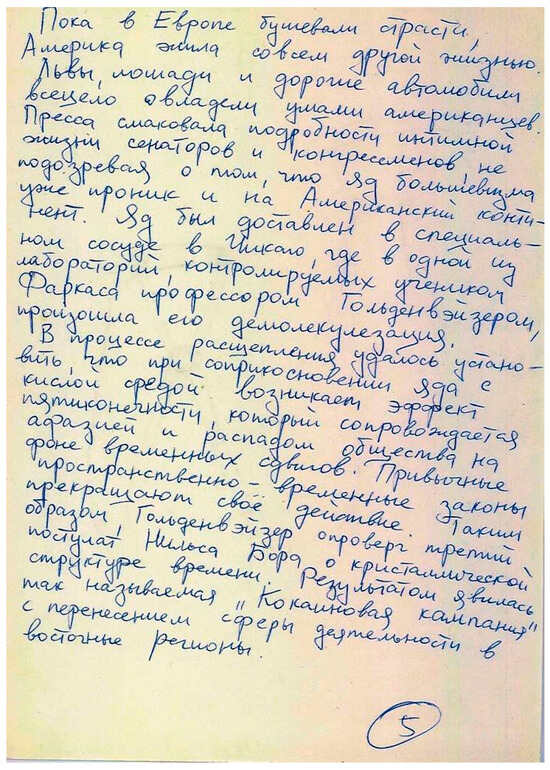 Пока в Европе бушевали страсти,
Америка жила совсем другой жизнью.
Львы, лошади и дорогие автомобили
всецело овладели умами американцев.
Пресса смаковала подробности интимной
жизни сенаторов и конгрессменов, не
подозревая о том, что яд большевизма
уже проник и на Американский конти-
нент. Яд был доставлен в специаль-
ном сосуде в Чикаго, где в одной из
лабораторий, контролируемых учеником
Фаркаса профессором Гольденвэйзером,
произошла его демолекулезация.
В процессе расщепления удалось устано-
вить, что при соприкосновении яда с
кислой средой возникает эффект
пятиконечности, который сопровождается
афазией и распадом общества на
фоне временных сдвигов. Привычные
пространственно-временные законы
прекращают своё действие. Таким
образом, Гольденвэйзер опроверг третий
постулат Нильса Бора о кристаллической
структуре времени. Результатом явилась
так называемая "Кокаиновая кампания"
с перенесением сферы деятельности в
восточные регионы.
5